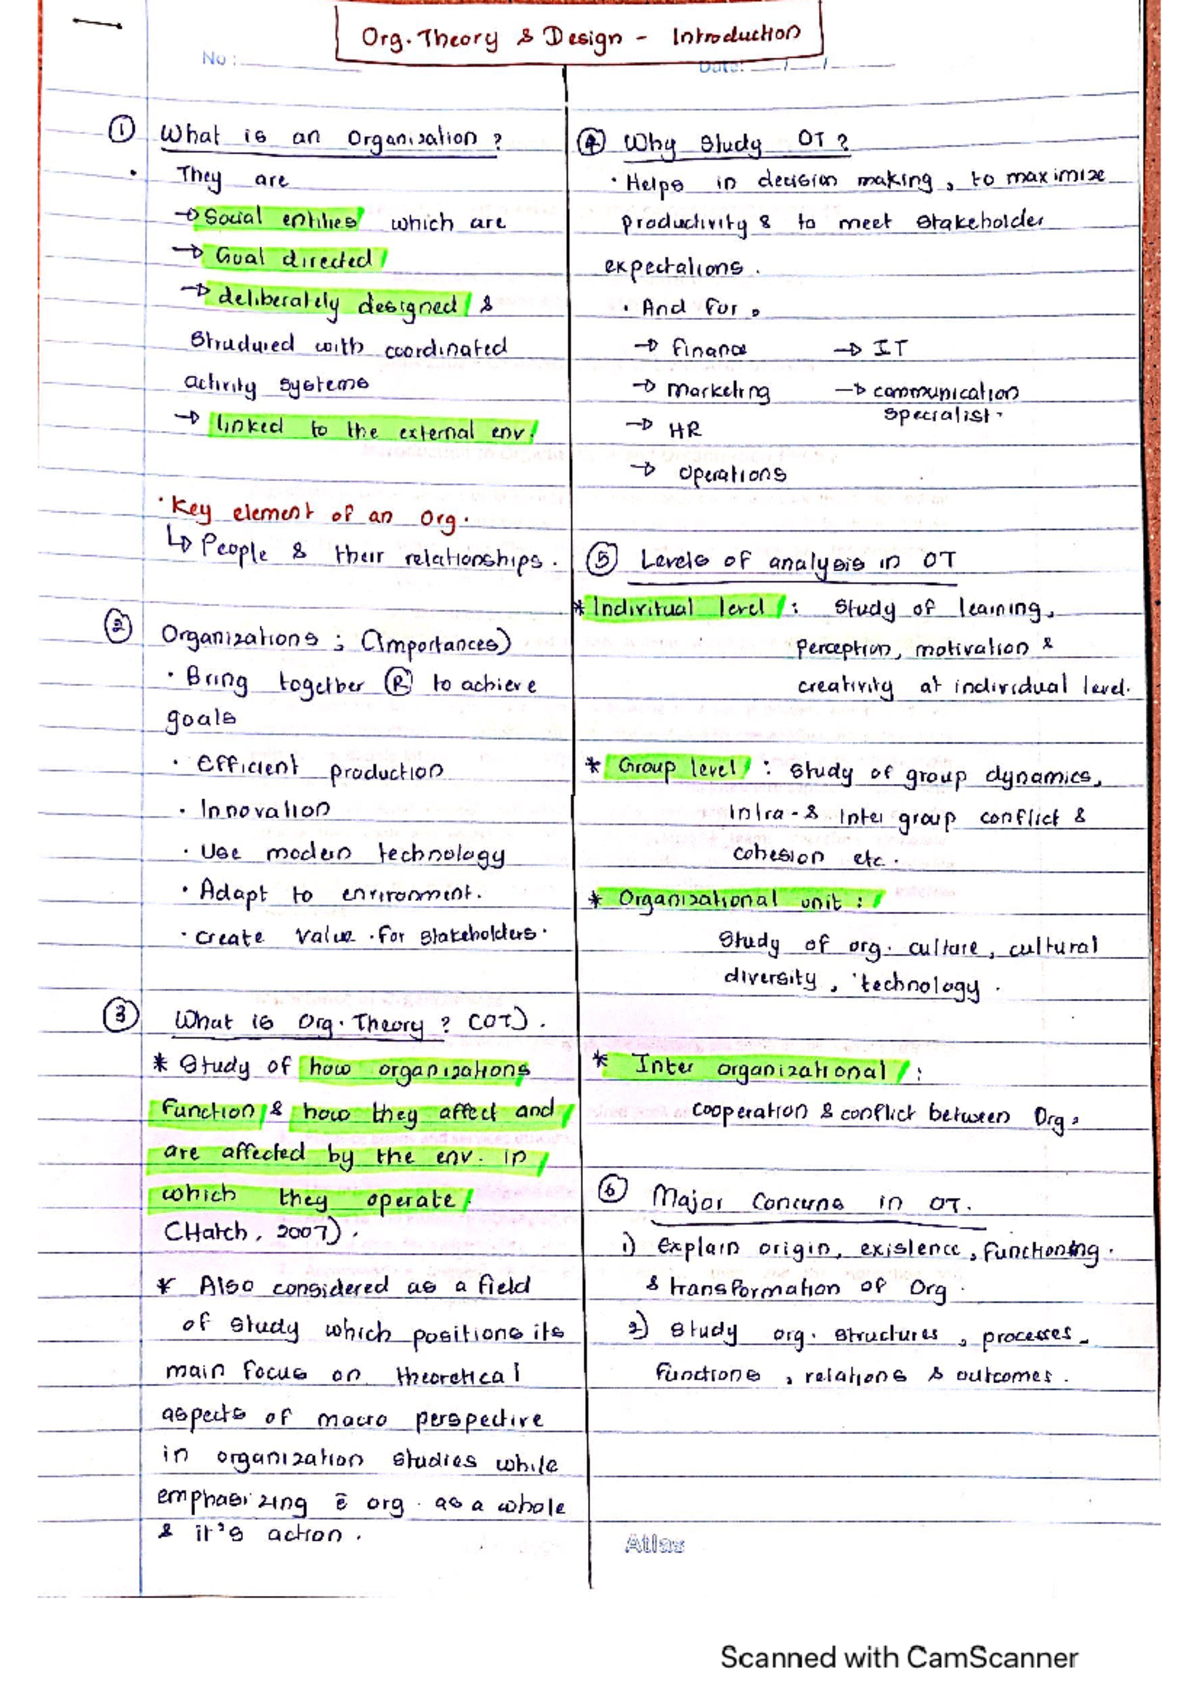 Org. Theory & Design - Introduction
No :
Date:
① What is an Organisation ?
• They are
→ Social entities which are
→ Goal directed
→ deliberately designed &
Structured with coordinated
activity systems
→ linked to the external env.
• Key element of an Org.
↳ People & their relationships.
② Organizations ; (Importances)
• Bring together Ⓡ to achieve
goals
• Efficient production
• Innovation
• Use modern technology
• Adapt to environment.
• create value for stakeholders.
③ What is Org. Theory ? (OT).
* Study of how organizations
Function & how they affect and
are affected by the env. in
which they operate.
(Hatch, 2007).
* Also considered as a field
of study which positions its
main focus on theoretical
aspects of macro perspective
in organization studies while
emphasizing ē org. as a whole
& it's action.
④ Why study OT ?
• Helps in decision making, to maximize
productivity & to meet stakeholder
expectations.
• And for,
→ finance → IT
→ marketing → communication
specialist.
→ HR
→ operations
⑤ Levels of analysis in OT
* Indivitual level : Study of learning,
perception, motivation &
creativity at individual level.
* Group level : study of group dynamics,
Intra- & Inter group conflict &
cohesion etc.
* Organizational unit :
Study of org. culture, cultural
diversity, technology.
* Inter organizational :
cooperation & conflict between Org.
⑥ Major Concerns in OT.
1) Explain origin, existence, functioning.
& transformation of Org.
2) Study org. structures, processes,
functions, relations & outcomes.
Atlas
Scanned with CamScanner